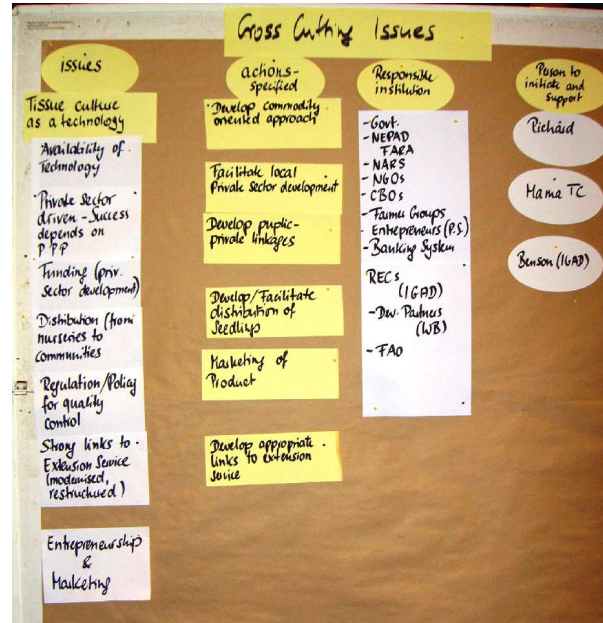 Cross Cutting Issues
issues
Tissue culture
as a technology
Availability of
Technology
Private Sector
driven - Success
depends on
PPP
Funding (priv.
sector development)
Distribution (from
nurseries to
communities
Regulation/Policy
for quality
control
Strong links to
Extension Service
(modernised,
restructured)
Entrepreneurship
&
Marketing
actions-
specified
Develop commodity
oriented approach
Facilitate local
Private Sector development
Develop public-
private linkages
Develop/Facilitate
distribution of
Seedlings
Marketing of
Product
Develop appropriate
links to extension
service
Responsible
institution
- Govt.
- NEPAD
FARA
- NARS
- NGOs
- CBOs
- Farmer Groups
- Entrepreneurs (P.S.)
- Banking System
RECs
(IGAD)
- Dev. Partners
(WB)
- FAO
Person to
initiate and
support
Richard
Mama TC
Benson (IGAD)